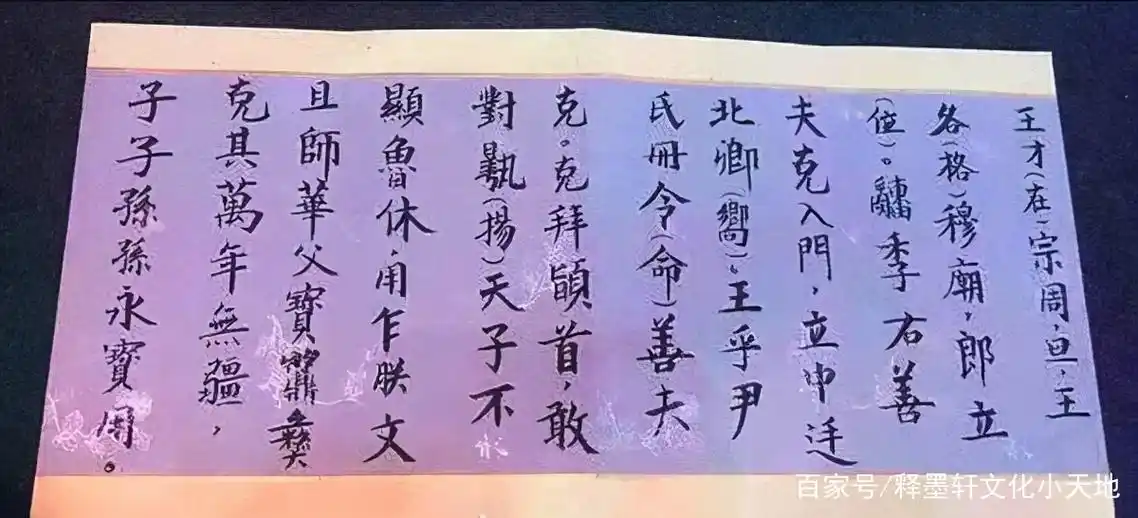 王才(在)宗周,旦,王
各(格)穆廟,郎立
(位)。季右善
夫克入門,立中廷
北卿(嚮)。王乎尹
氏冊令(命)善夫
克。克拜頴首,敢
對(揚)天子不
顯魯休,用乍朕文
且師華父寶彝
克其萬年無疆,
子子孫孫永寶用。
百家号/释墨轩文化小天地